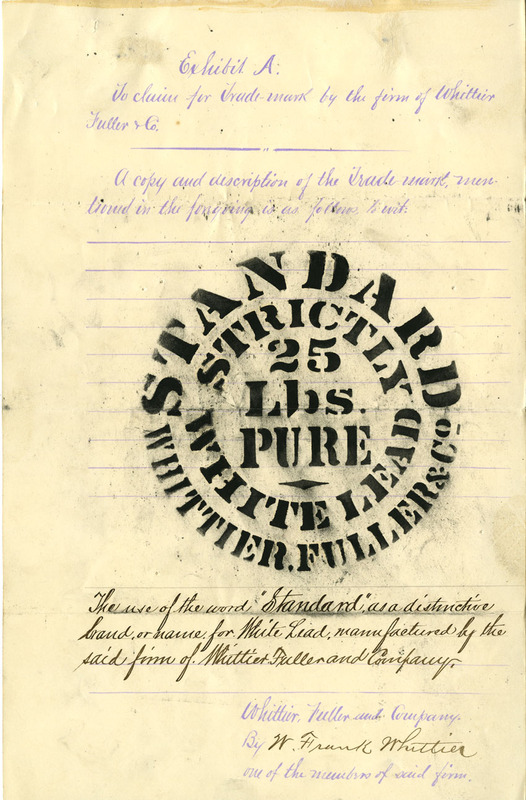 Exhibit A:
To claim for Trade-mark by the firm of Whittier
Fuller & Co.
A copy and description of the Trade-mark, men-
tioned in the forgoing is as follows, to wit:
STANDARD
STRICTLY
25
Lbs.
PURE
WHITE LEAD
WHITTIER, FULLER & Co
The use of the word, "Standard", as a distinctive
brand, or name, for White Lead, manufactured by the
said firm of Whittier Fuller and Company.
Whittier, Fuller and Company.
By W. Frank Whittier
one of the members of said firm.